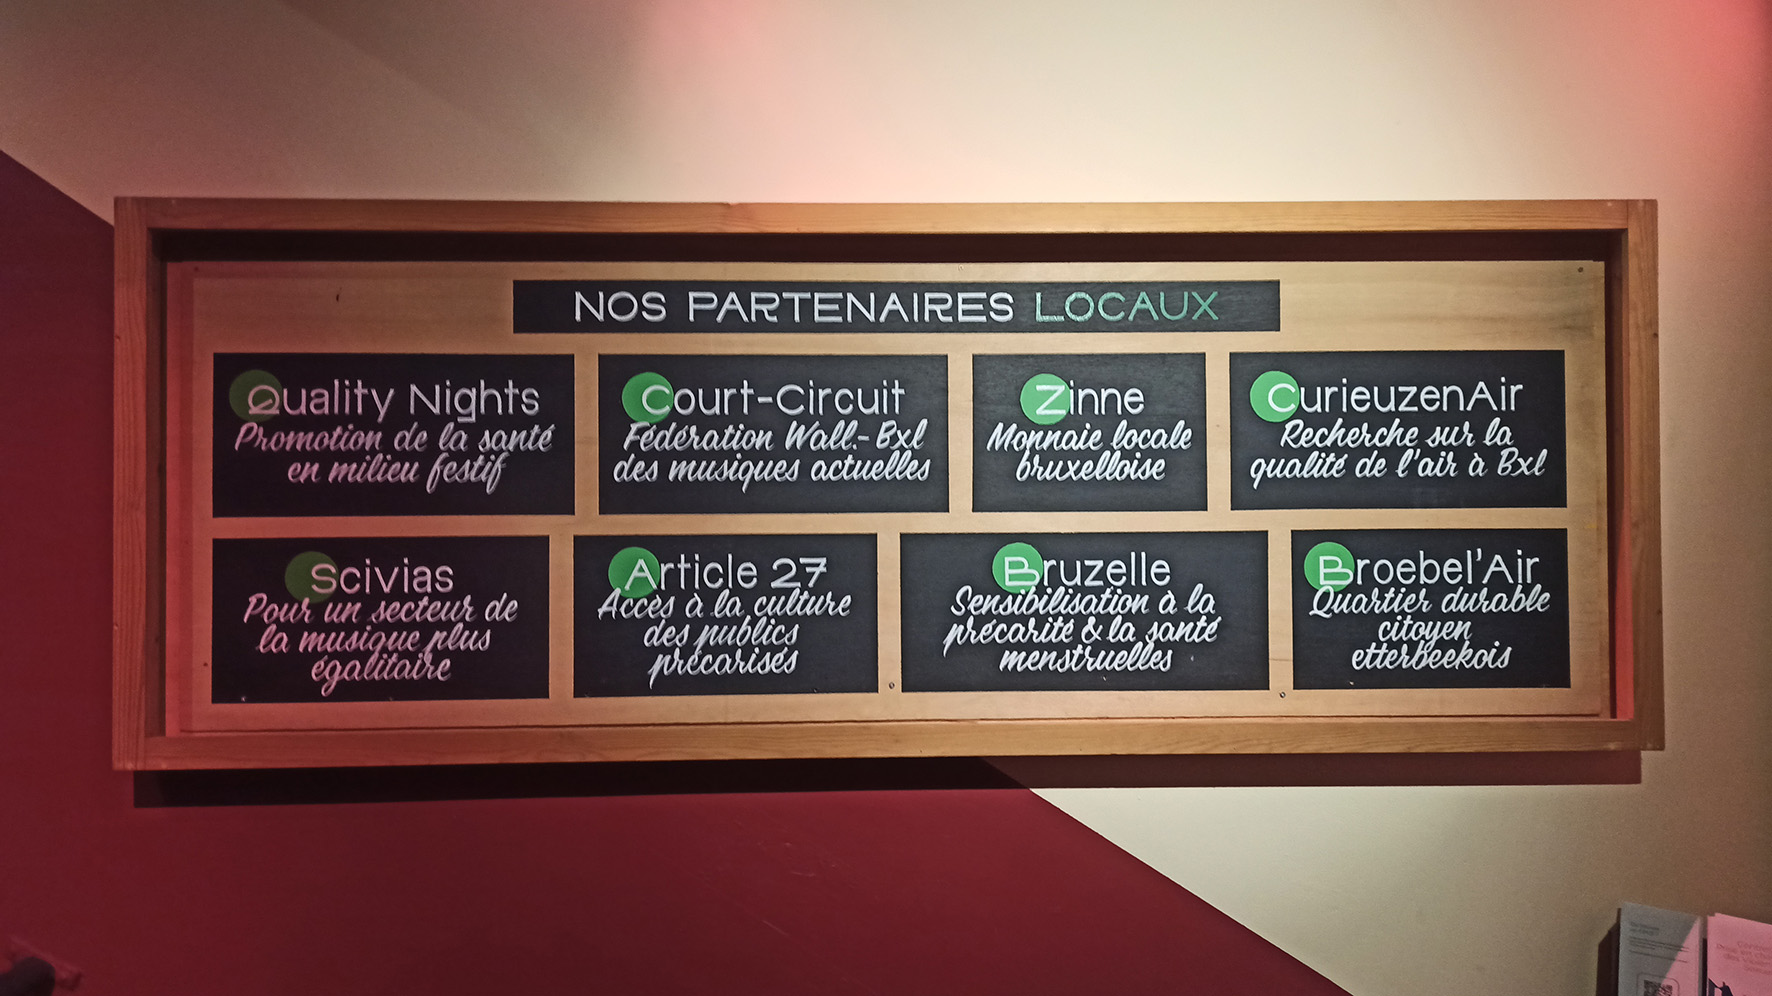 NOS PARTENAIRES LOCAUX
Quality Nights
Promotion de la santé
en milieu festif
Court-Circuit
Fédération Wall.-Bxl
des musiques actuelles
Zinne
Monnaie locale
bruxelloise
CurieuzenAir
Recherche sur la
qualité de l'air à Bxl
Scivias
Pour un secteur de
la musique plus
égalitaire
Article 27
Accès à la culture
des publics
précarisés
Bruzelle
Sensibilisation à la
précarité & la santé
menstruelles
Broebel'Air
Quartier durable
citoyen
etterbeekois